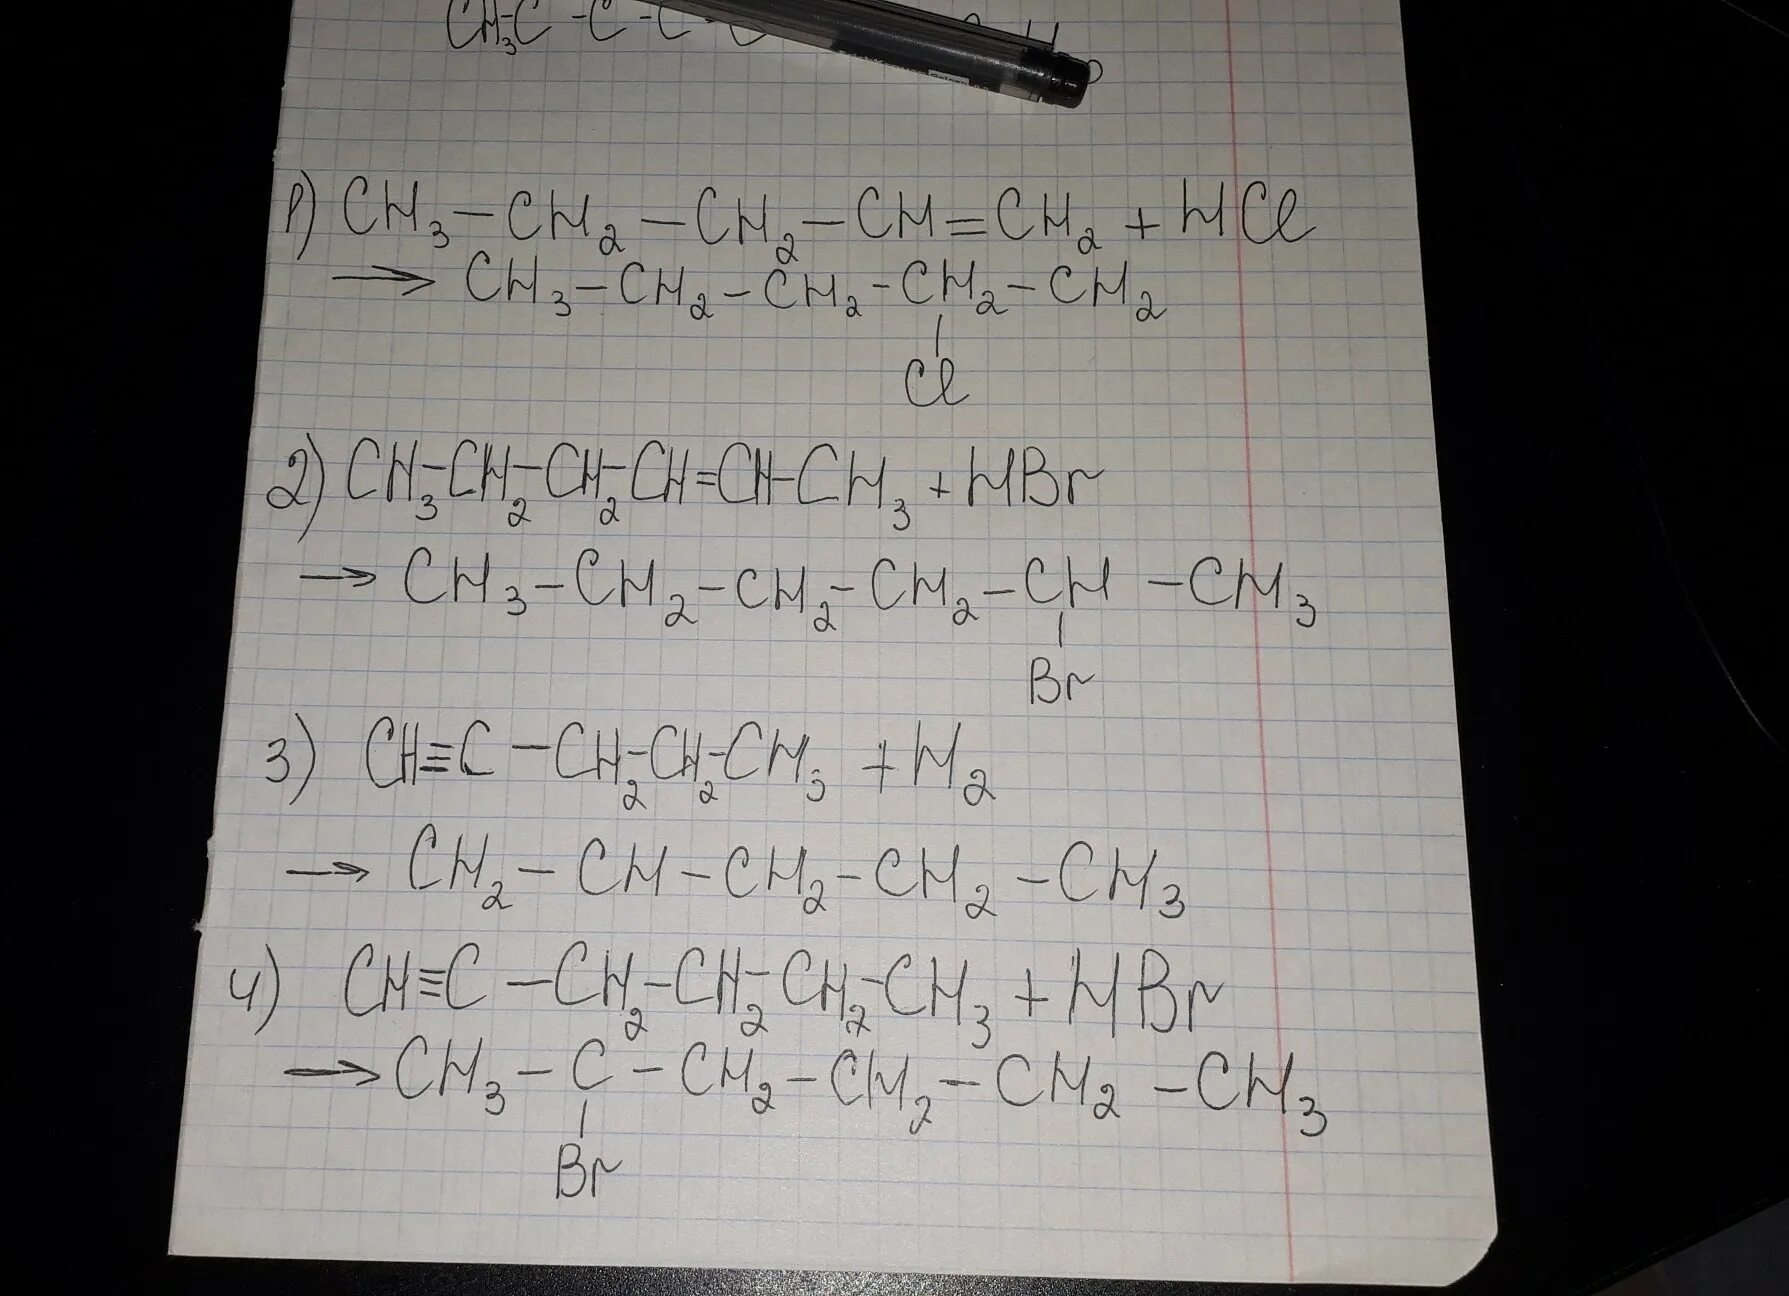 CH₃-C-C-C-C
1) CH₃–CH₂–CH₂–CH=CH₂ + HCl
→ CH₃–CH₂–CH₂–CH₂–CH₂
Cl
2) CH₃–CH₂–CH₂–CH=CH–CH₃ + HBr
→ CH₃–CH₂–CH₂–CH₂–CH–CH₃
Br
3) CH≡C–CH₂–CH₂–CH₃ + H₂
→ CH₂–CH–CH₂–CH₂–CH₃
4) CH≡C–CH₂–CH₂–CH₂–CH₃ + HBr
→ CH₃–C–CH₂–CH₂–CH₂–CH₃
Br